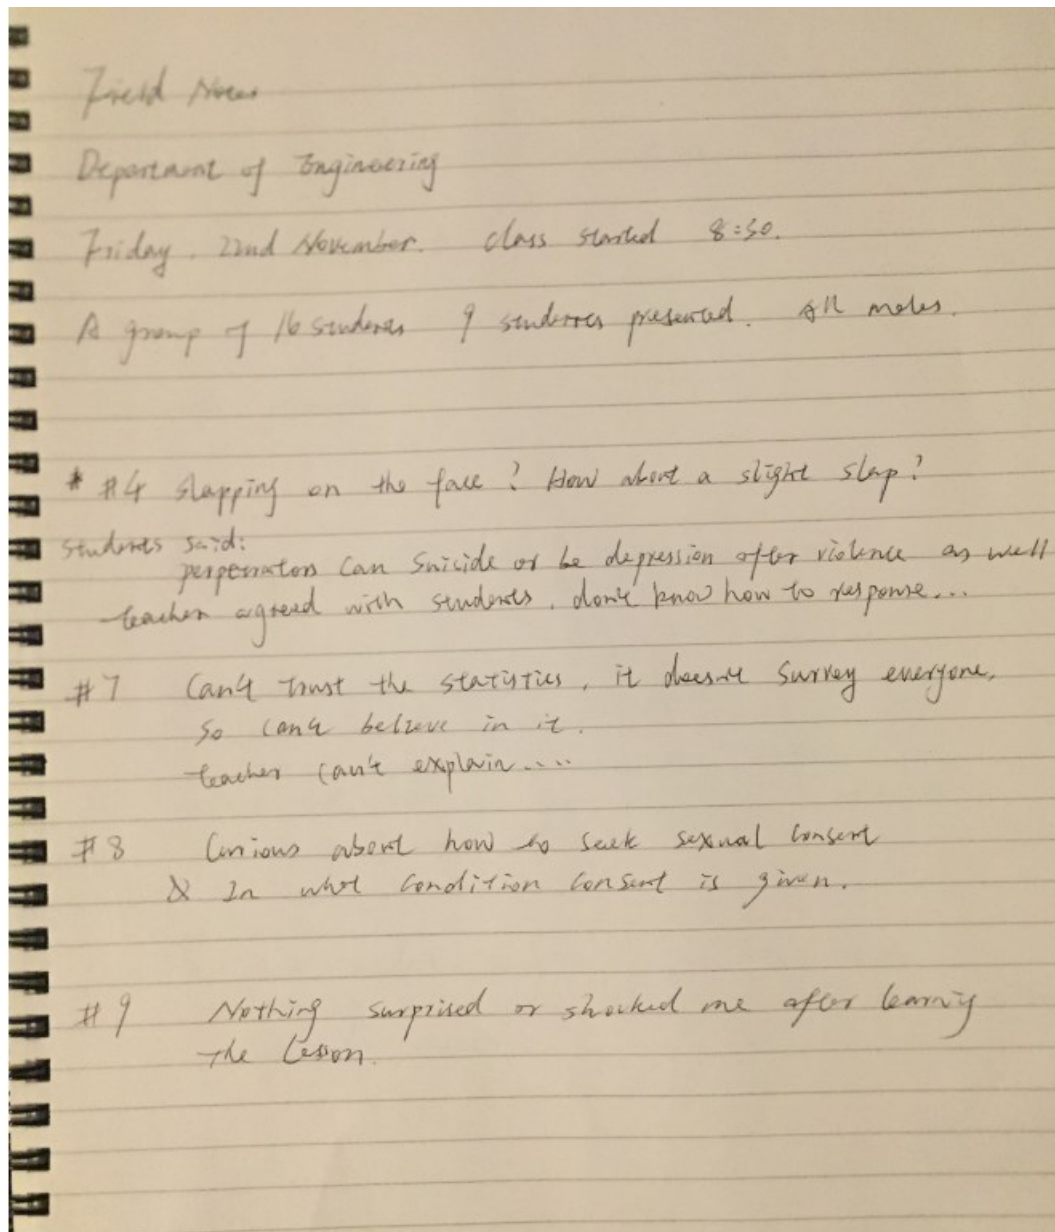 Field Notes
Department of Engineering
Friday. 22nd November. class started 8:30.
A group of 16 students 9 students presented. All males.
* #4 slapping on the face? How about a slight slap?
students said:
perpetrators can suicide or be depression after violence as well
teacher agreed with students, don't know how to response...
#7 Can't trust the statistics, it doesn't survey everyone,
so can't believe in it.
teacher can't explain....
#8 Curious about how to seek sexual consent
& In what condition consent is given.
#9 Nothing surprised or shocked me after learning
the lesson.